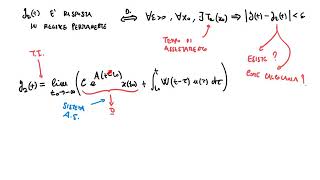 y_R(t) E' RISPOSTA IN REGIME PERMANENTE D. ⟺ ∀ε>0, ∀x₀, ∃T_a(x₀) ⟹ |y(t) - y_R(t)| < ε
TEMPO DI ASSESTAMENTO
T.I. ESISTE ?
COME CALCOLARLA ?
y_R(t) = lim_{t₀→-∞} ( C e^{A(t-t₀)} x(t₀) + ∫_{t₀}^{t} W(t-τ) u(τ) dτ )
SISTEMA A.S.
0